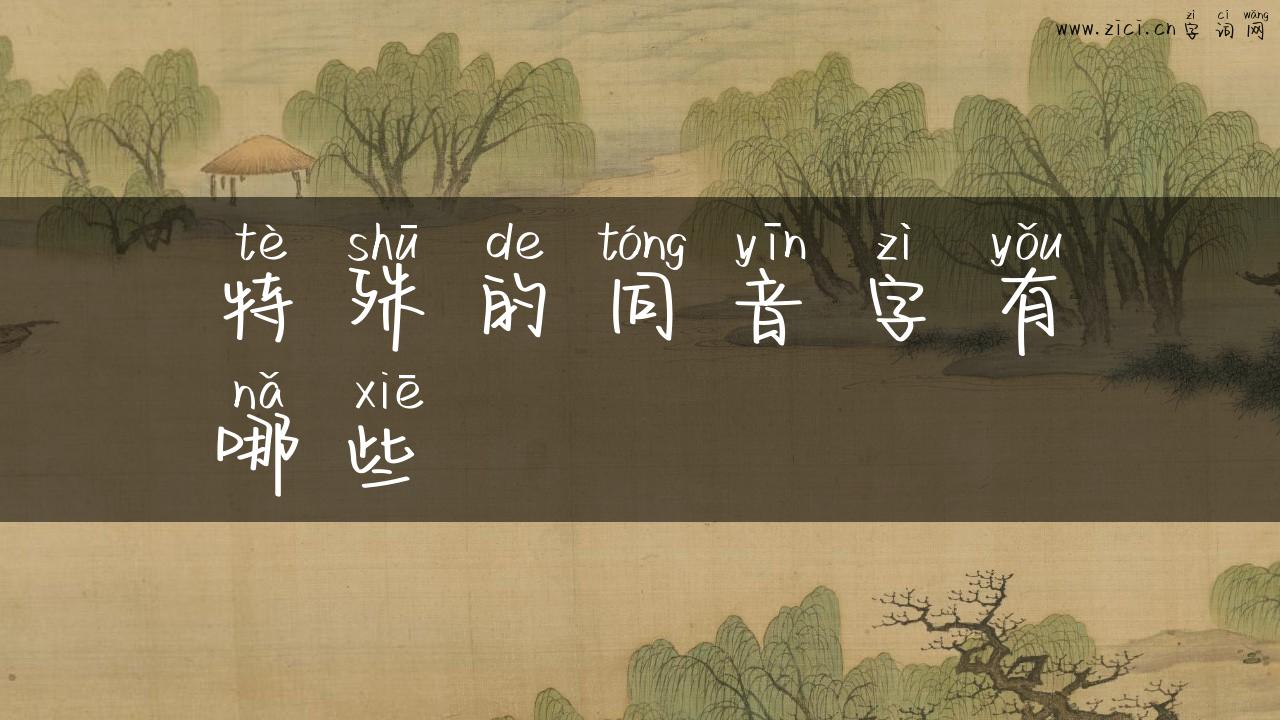 zì cí wǎng
www.zici.cn 字 词 网
tè shū de tóng yīn zì yǒu
特 殊 的 同 音 字 有
nǎ xiē
哪 些